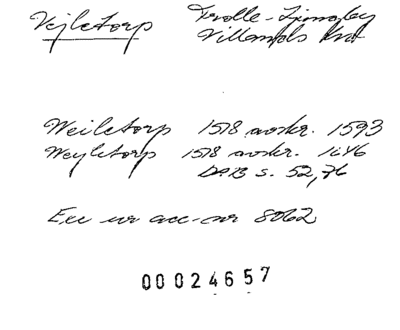 Vejletorp Trolle-Ljungby
Villands hd
Weiletorp 1578 avskr. 1593
Weyletorp 1578 avskr. 1646
DAB s. 52, 76
Exc ur acc-nr 8062
00024657